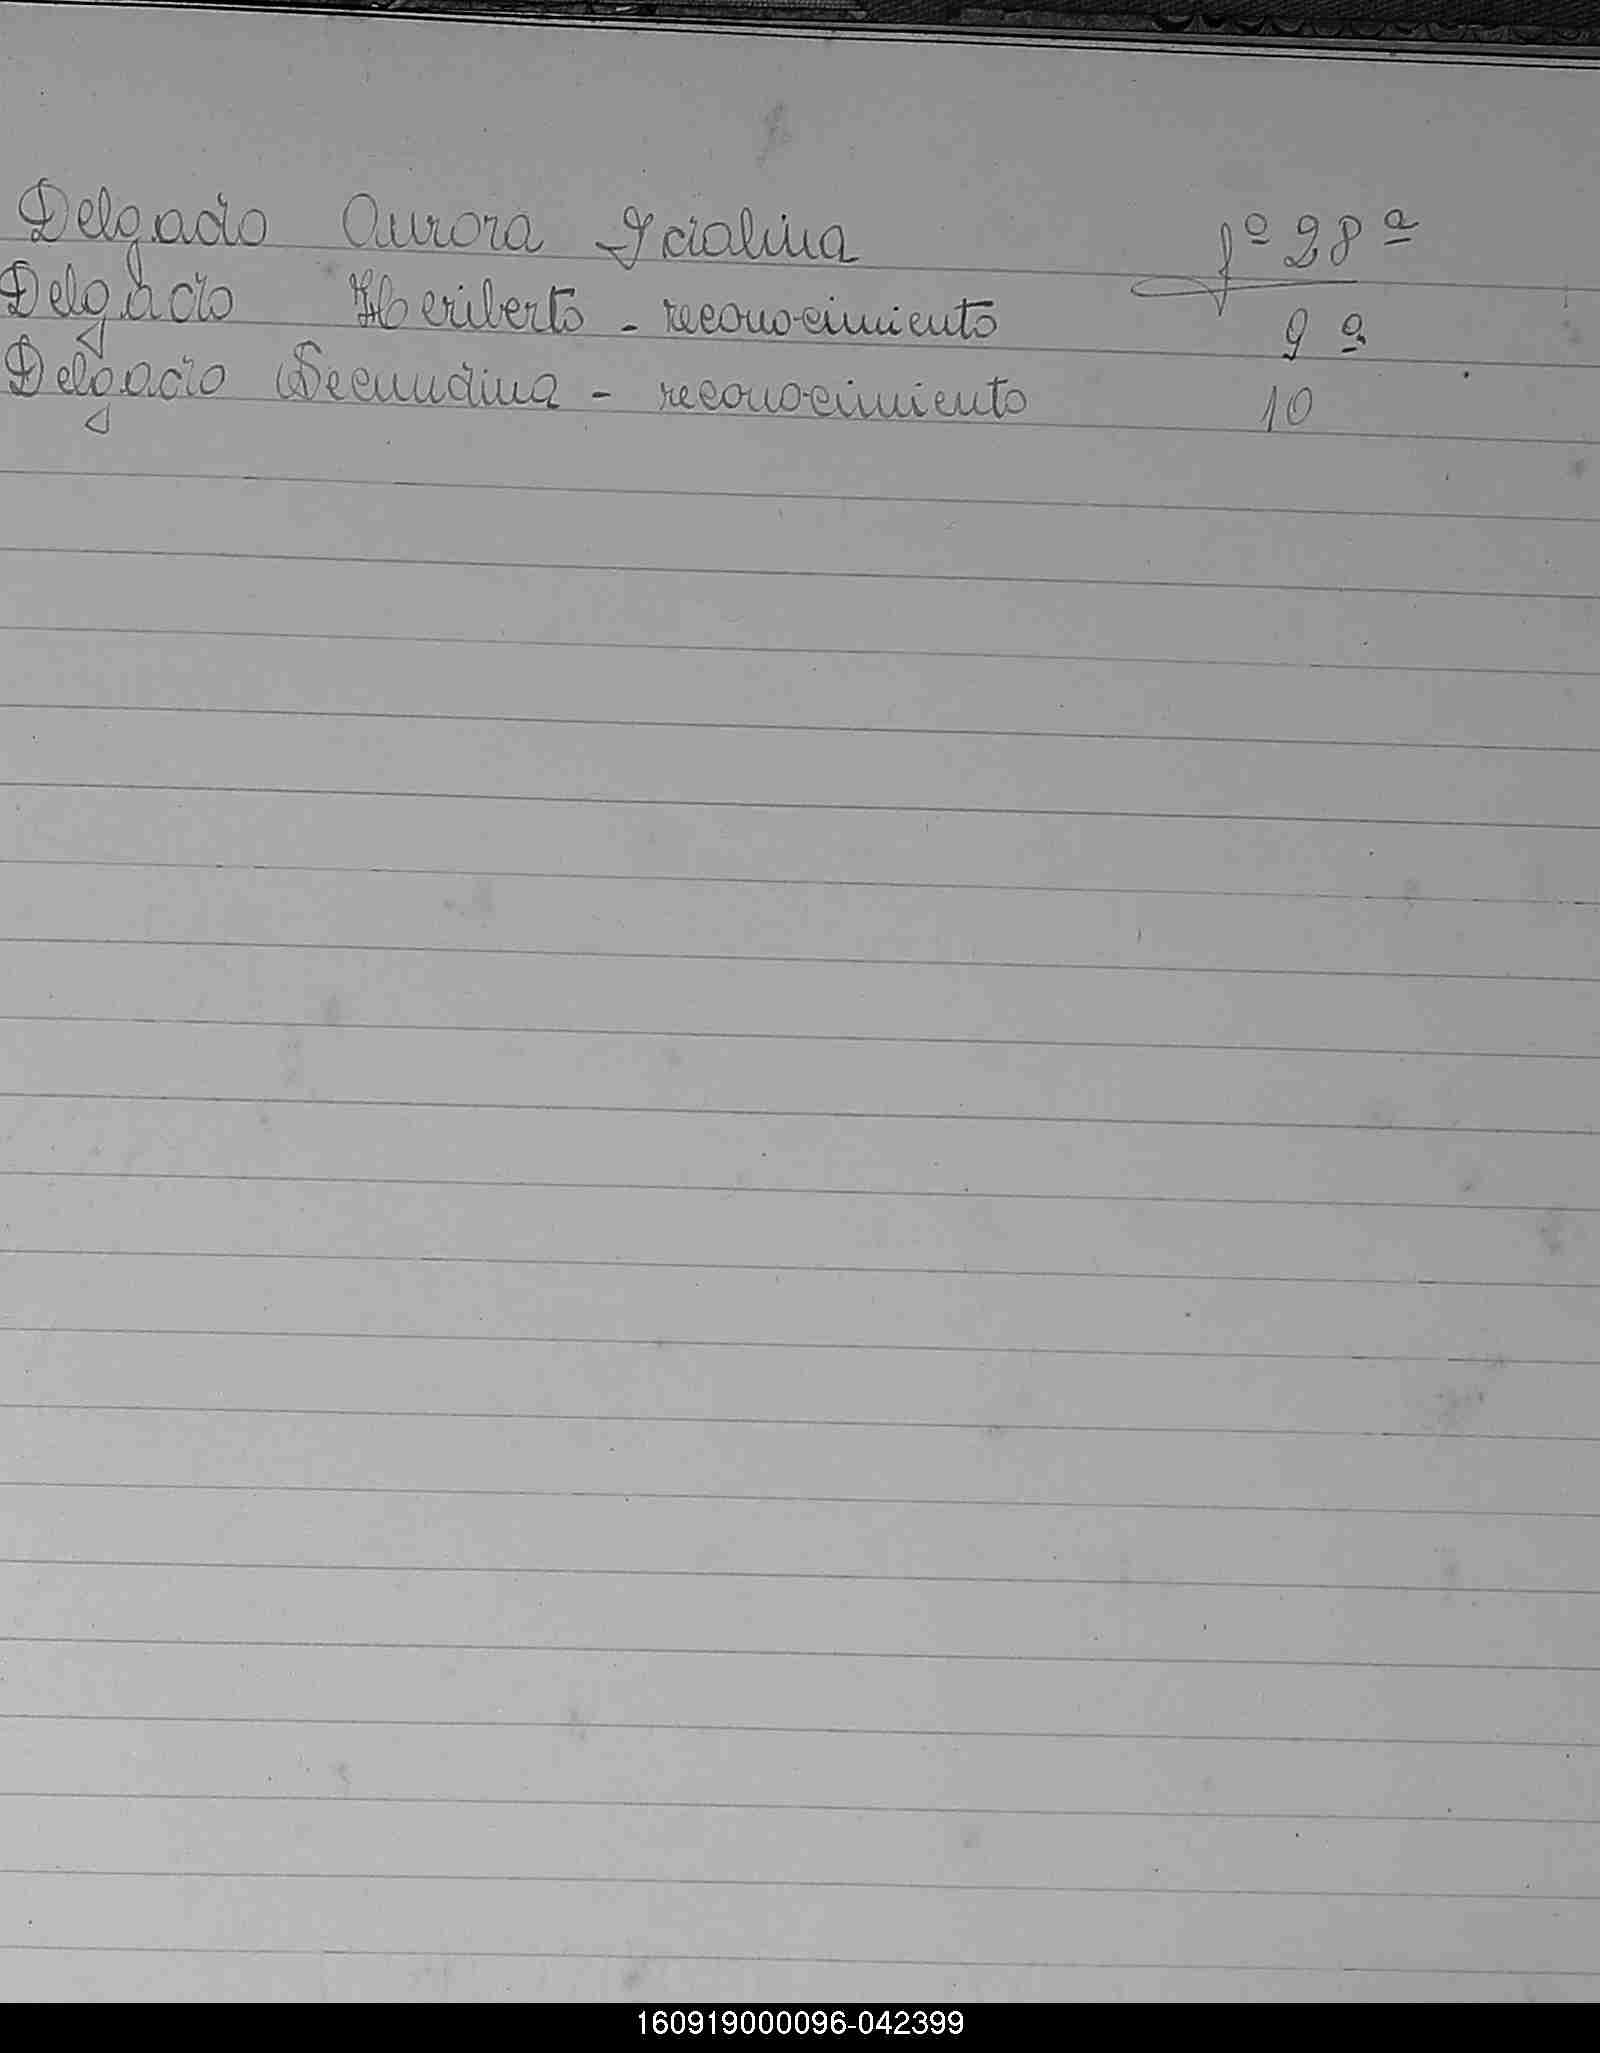 Delgado Aurora Idalina fº 28ª
Delgado Heriberto - reconocimiento 9ª
Delgado Secundina - reconocimiento 10
160919000096-042399